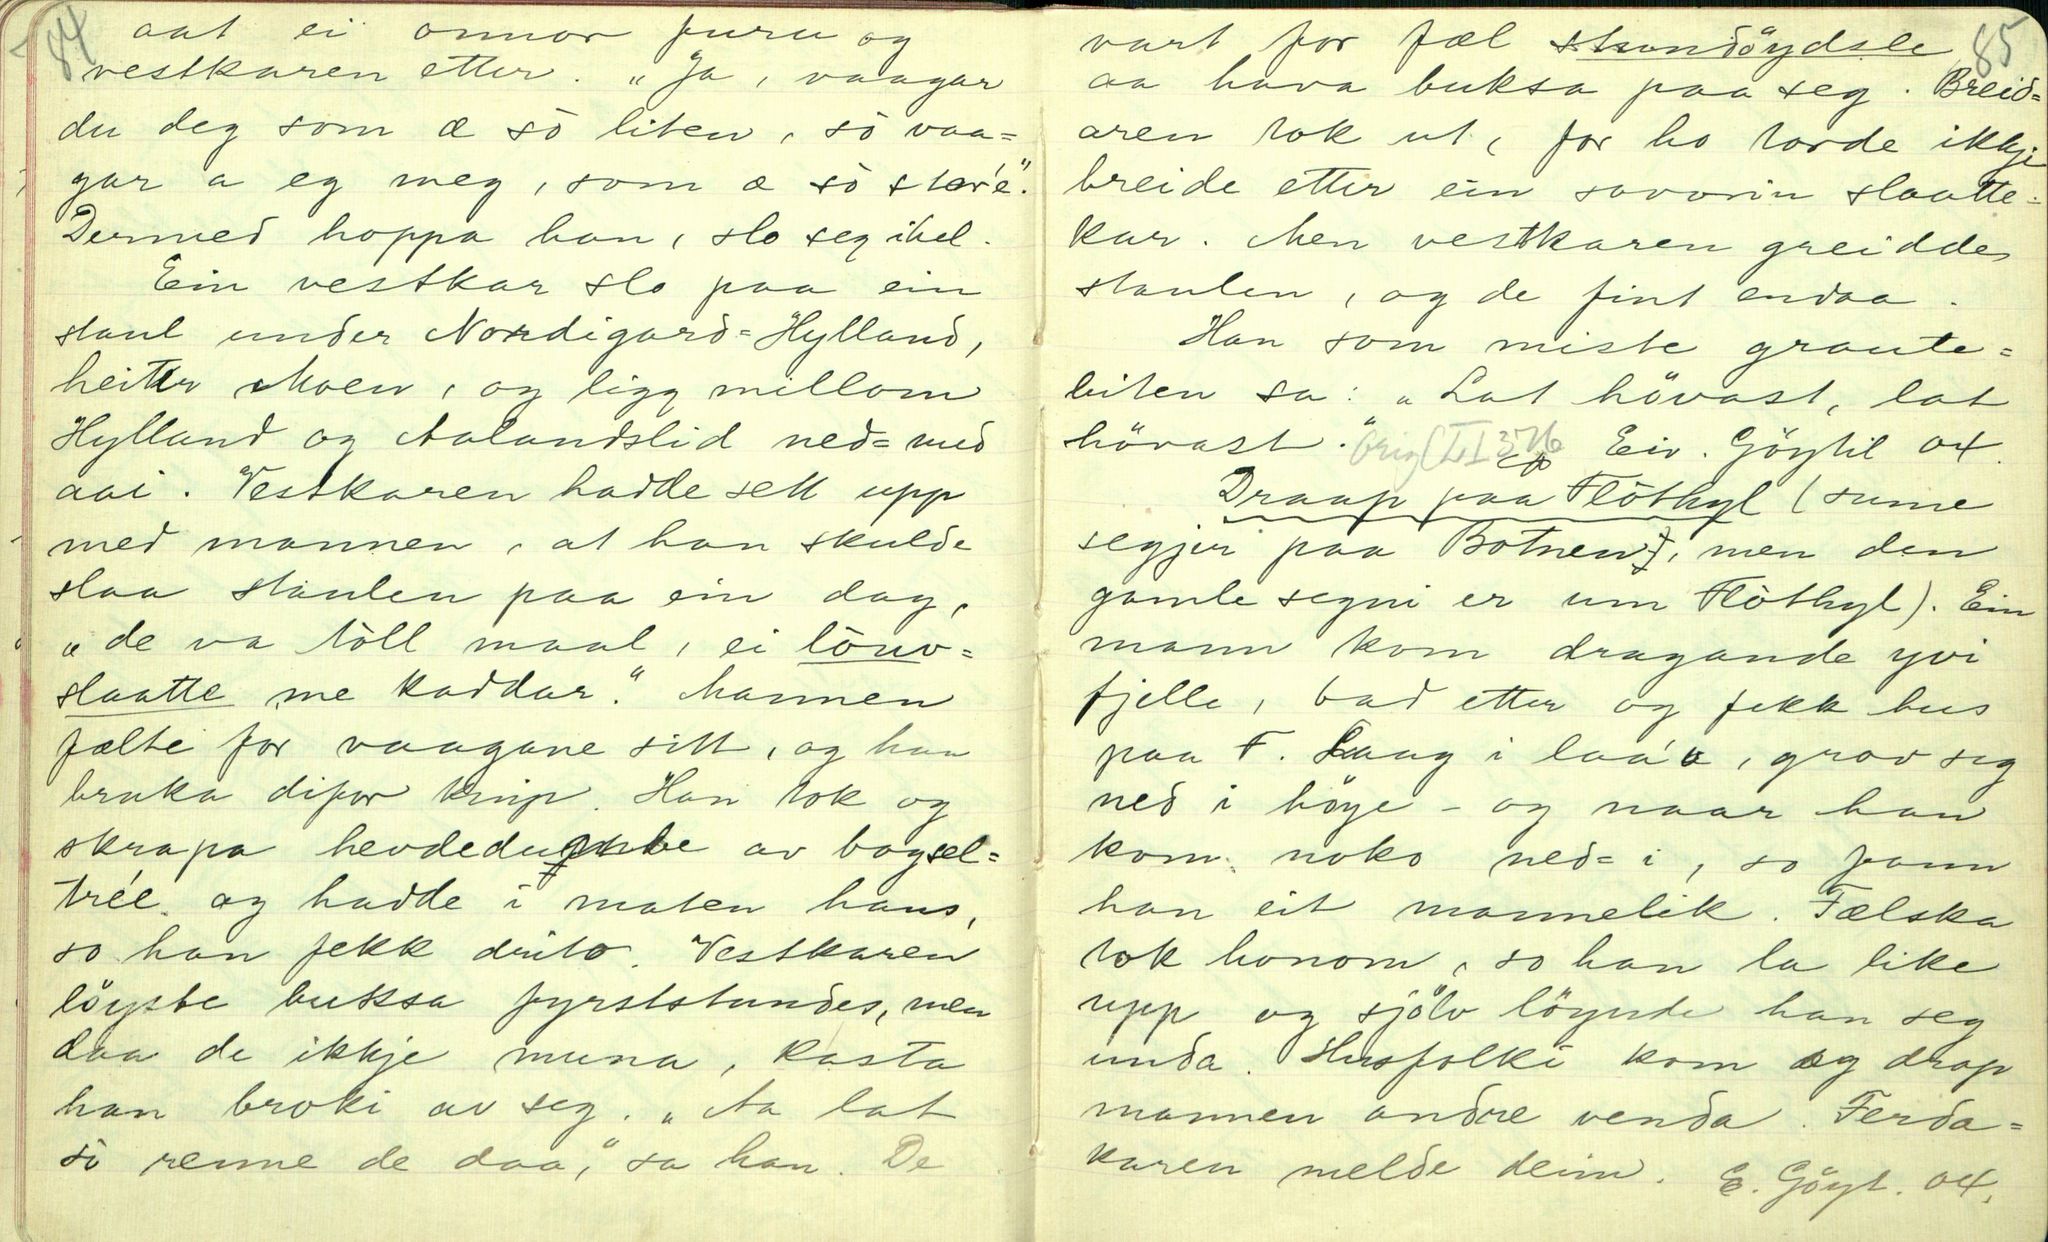 84
aat ei onnor furu og
vestkaren etter. „Ja, vaagar
du deg som æ sò liten, sò vaa=
gar a eg meg, som æ sò stór'e".
Dermed hoppa han, slo seg ihel.
Ein vestkar slo paa ein
staul under Nordigard=Hylland,
heiter Moen, og ligg millom
Hylland og Aalandslid ned=med
aai. Vestkaren hadde sett upp
med mannen, at han skulde
slaa staulen paa ein dag,
„de va tòll maal, ei lòuv=
slaatte me kaddar." Mannen
fælte for vaagane sitt, og han
bruka difor knip. Han tok og
skrapa hevdedumbe av bogsel=
tréé og hadde i maten hans,
so han fekk drito. Vestkaren
löyste buksa fyrststundes, men
daa de ikkje muna, kasta
han broki av seg. „Aa lat
sò renne de daa," sa han. De
85
vart for fæl stundöydsle
aa hava buksa paa seg. Breid=
aren tok ut, for ho torde ikkje
breide etter ein sovorin slaatte=
kar. Men vestkaren greidde
staulen, og de fint endaa.
Han som miste graute=
biten sa: „Lat hövast, lat
hövast." Eiv. Göytil 04.
Draap paa Flòthyl (sume
segjer paa Botnen, men den
gamle segni er um Flòthyl). Ein
mann kom dragande yvi
fjelle, bad etter og fekk hus
paa F. Laag i laa'a, grov seg
ned i höye - og naar han
kom noko ned=i, so fann
han eit mannelik. Fælska
tok honom, so han la like
upp og sjölv löynde han seg
unda. Husfolki kom og drap
mannen andre venda. Ferda=
karen melde deim. E. Göyt. 04.